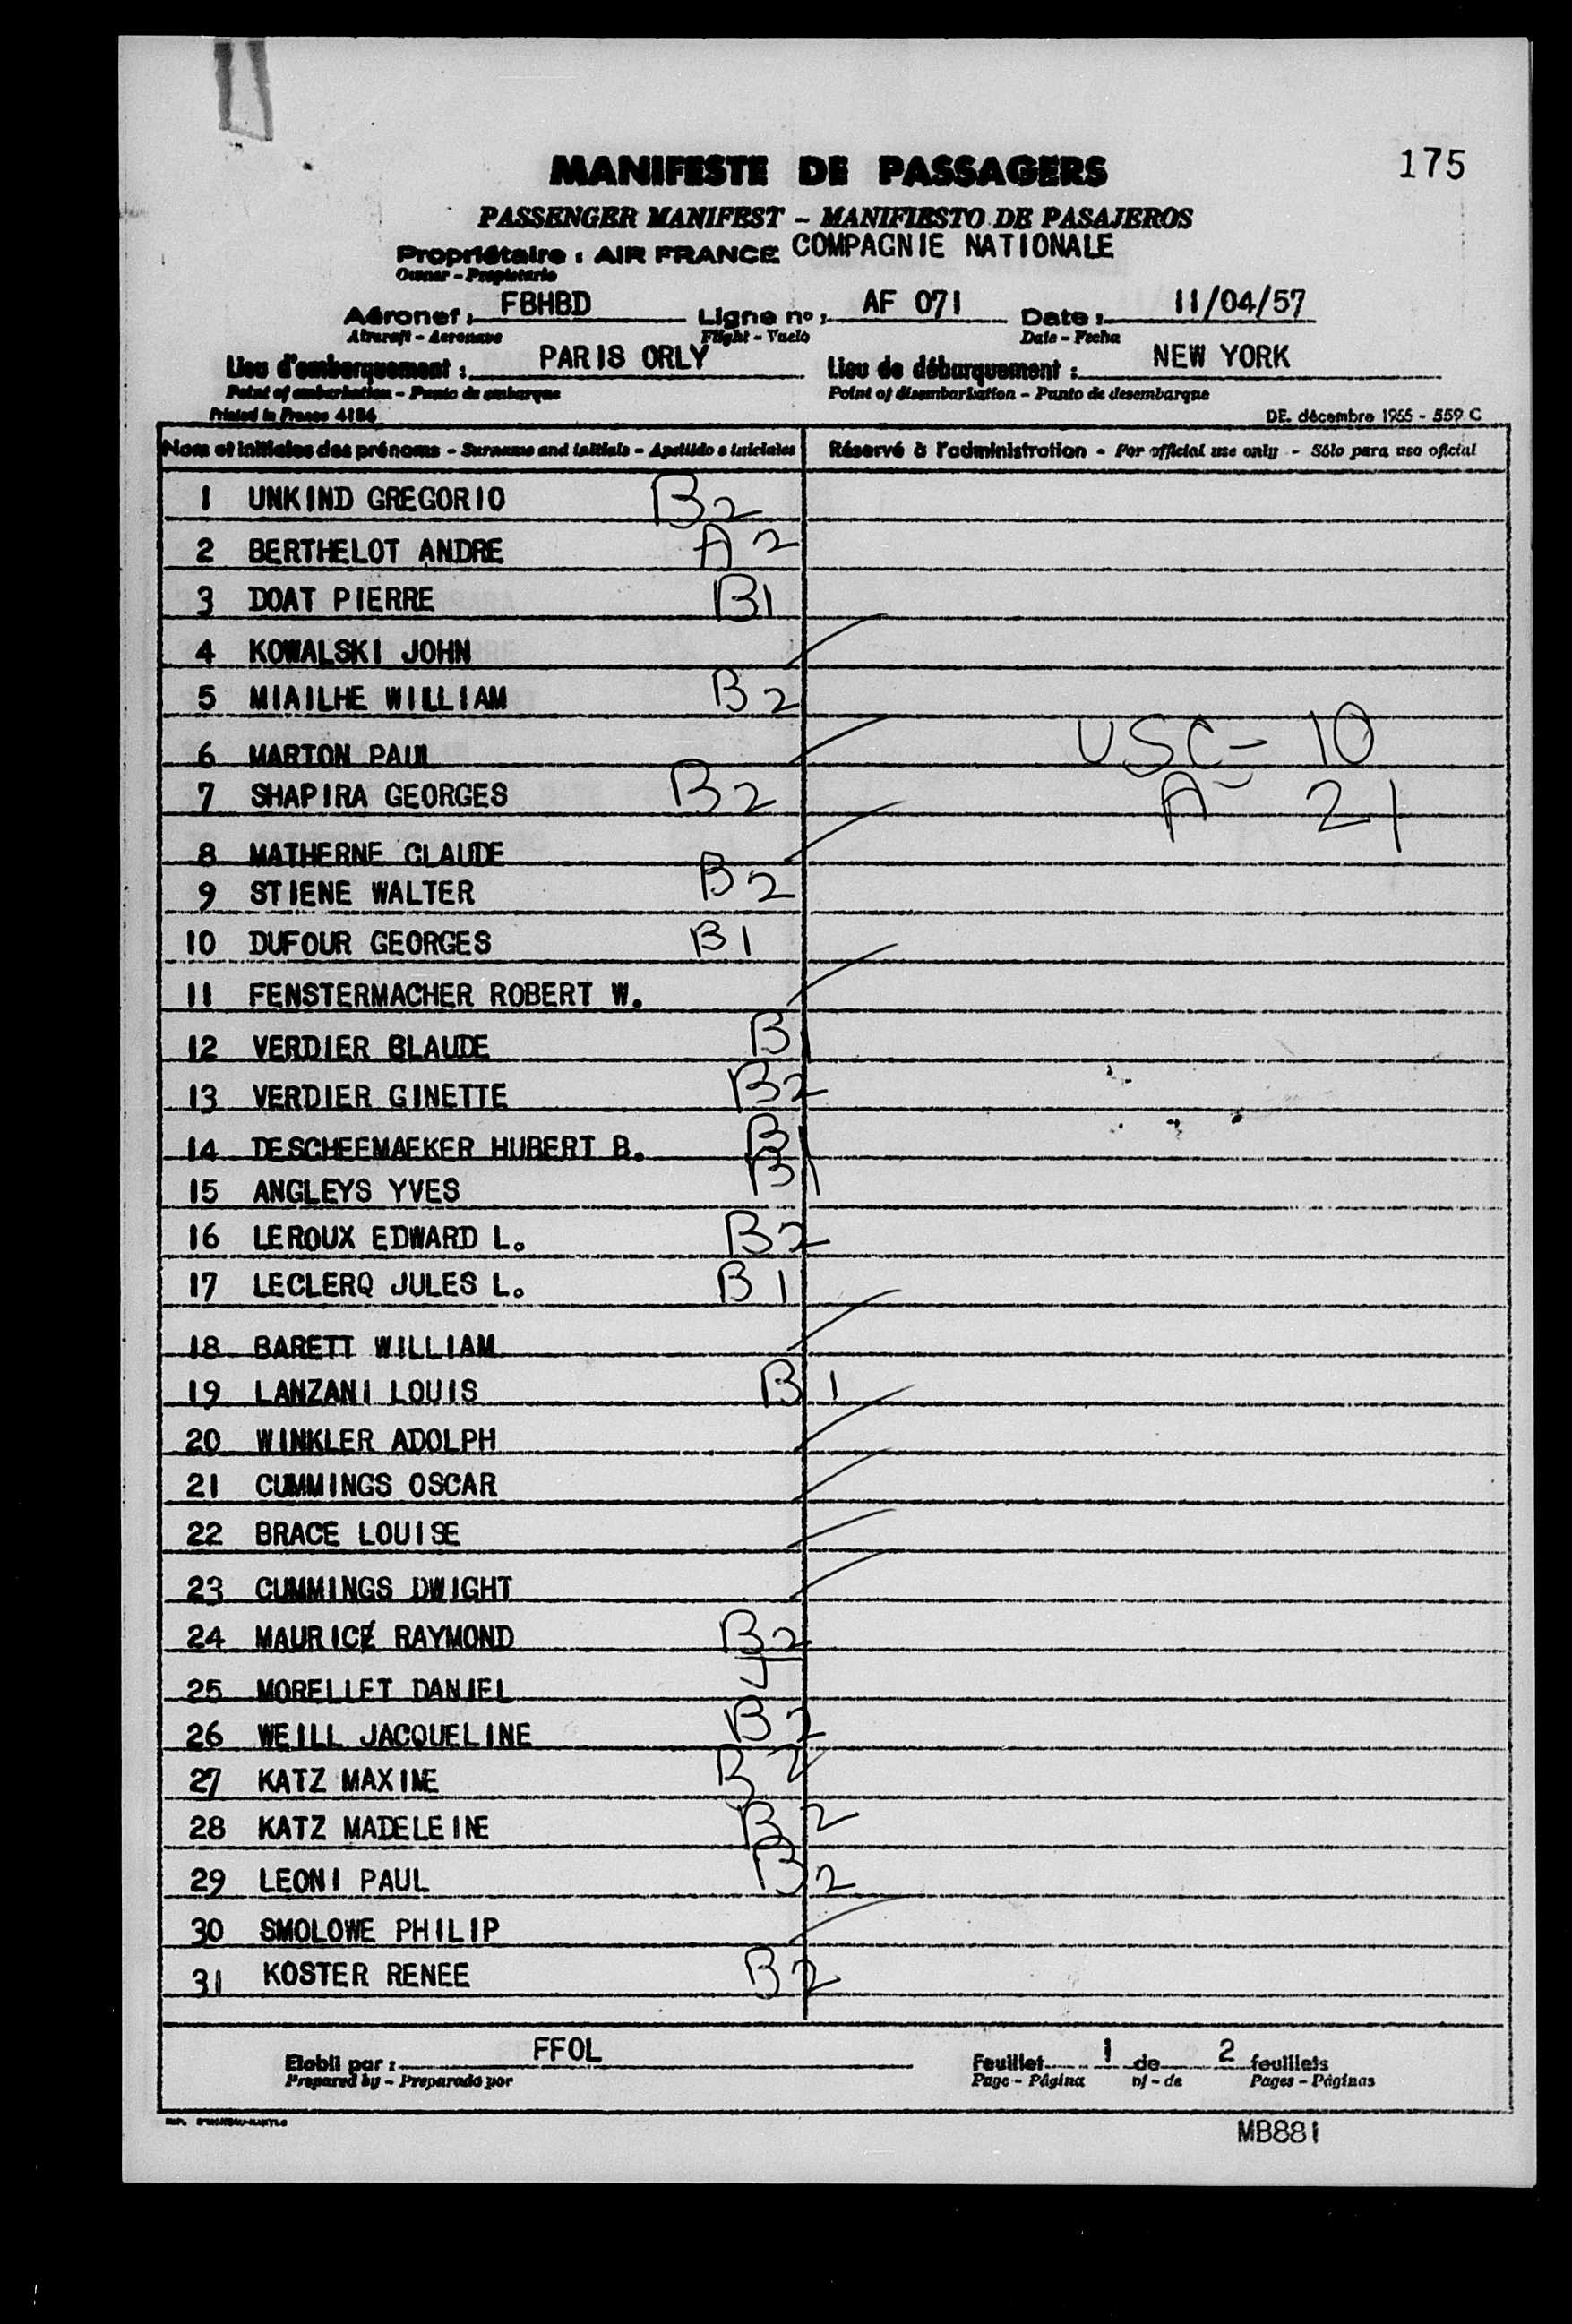 175
MANIFESTE DE PASSAGERS
PASSENGER MANIFEST - MANIFIESTO DE PASAJEROS
Propriétaire : AIR FRANCE COMPAGNIE NATIONALE
Owner - Propietario
Aéronef : FBHBD Ligne nº : AF 071 Date : 11/04/57
Aircraft - Aeronave Flight - Vuelo Date - Fecha
Lieu d'embarquement : PARIS ORLY Lieu de débarquement : NEW YORK
Point of embarkation - Punto de embarque Point of disembarkation - Punto de desembarque
Printed in France 4186 DE. décembre 1955 - 559 C
Nom et initiales des prénoms - Surname and initials - Apellido e iniciales Réservé à l'administration - For official use only - Sólo para uso oficial
1 UNKIND GREGORIO B2
2 BERTHELOT ANDRE A2
3 DOAT PIERRE B1
4 KOWALSKI JOHN
5 MIAILHE WILLIAM B2
6 MARTON PAUL USC- 10
7 SHAPIRA GEORGES B2 A- 21
8 MATHERNE CLAUDE
9 STIENE WALTER B2
10 DUFOUR GEORGES B1
11 FENSTERMACHER ROBERT W.
12 VERDIER BLAUDE B1
13 VERDIER GINETTE B2
14 DESCHEEMAEKER HUBERT B. B1
15 ANGLEYS YVES B1
16 LEROUX EDWARD L. B2
17 LECLERQ JULES L. B1
18 BARETT WILLIAM
19 LANZANI LOUIS B1
20 WINKLER ADOLPH
21 CUMMINGS OSCAR
22 BRACE LOUISE
23 CUMMINGS DWIGHT
24 MAURICE RAYMOND B2
25 MORELLET DANIEL J
26 WEILL JACQUELINE B2
27 KATZ MAXIME B2
28 KATZ MADELEINE B2
29 LEONI PAUL B2
30 SMOLOWE PHILIP
31 KOSTER RENEE B2
Etabli par : FFOL Feuillet 1 de 2 feuillets
Prepared by - Preparado por Page - Página of - de Pages - Páginas
MB881